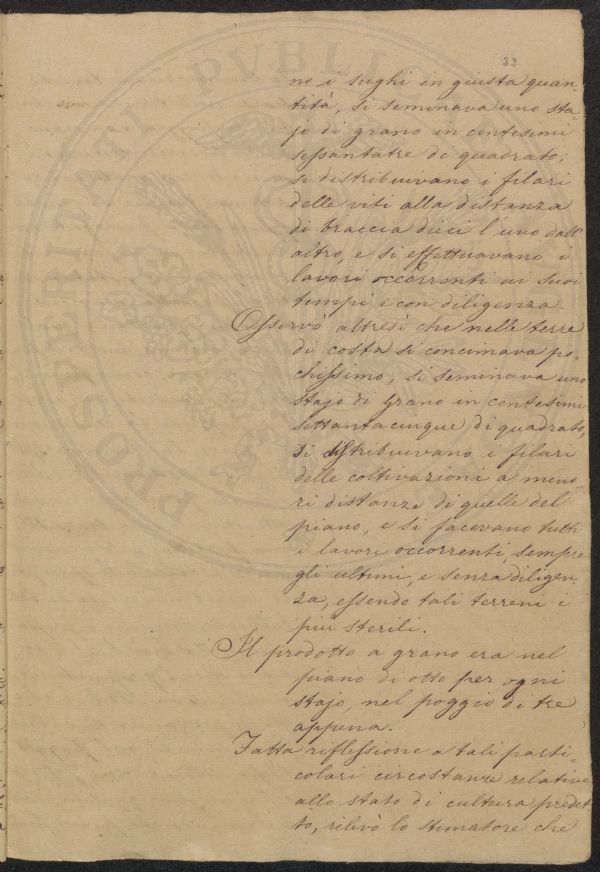 33
no i sughi in giusta quan-
tità, si seminava uno sta-
jo di grano in centesimi
sessantatre di quadrato,
si distribuivano i filari
delle viti alla distanza
di braccia dieci l'uno dall'
altro, e si effettuavano i
lavori occorrenti ai suoi
tempi e con diligenza.
Osservò altresì che nelle terre
di costa si concimava po-
chissimo, si seminava uno
stajo di grano in centesimi
settantacinque di quadrato,
si distribuivano i filari
delle coltivazioni a mino-
ri distanze di quelle del
piano, e si facevano tutti
i lavori occorrenti, sempre
gli ultimi, e senza diligen-
za, essendo tali terreni i
più sterili.
Il prodotto a grano era nel
piano di otto per ogni
stajo, nel poggio di tre
appena.
Fatta riflessione a tali parti-
colari circostanze relative
allo stato di cultura predet-
to, rilevò lo stimatore che
PROSPERITATI PVBLIC